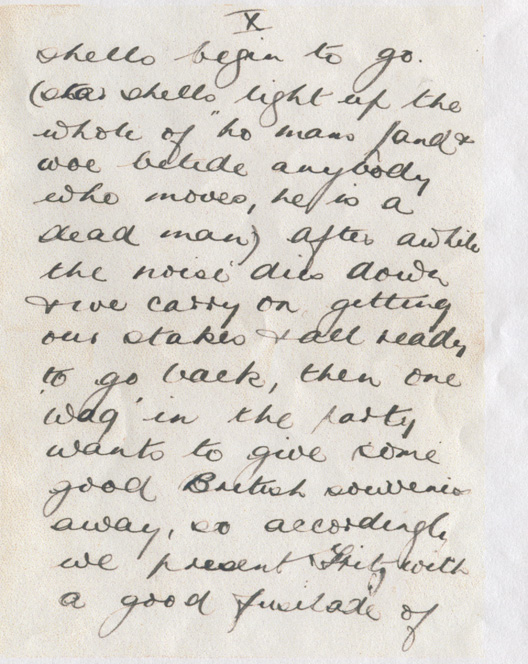 X
shells begin to go.
(star shells light up the
whole of "no mans land &
woe betide anybody
who moves, he is a
dead man) after awhile
the noise dies down
& we carry on getting
our stakes & all ready
to go back, then one
'wag' in the party
wants to give some
good British souvenirs
away, so accordingly
we present Fritz with
a good fusilade of